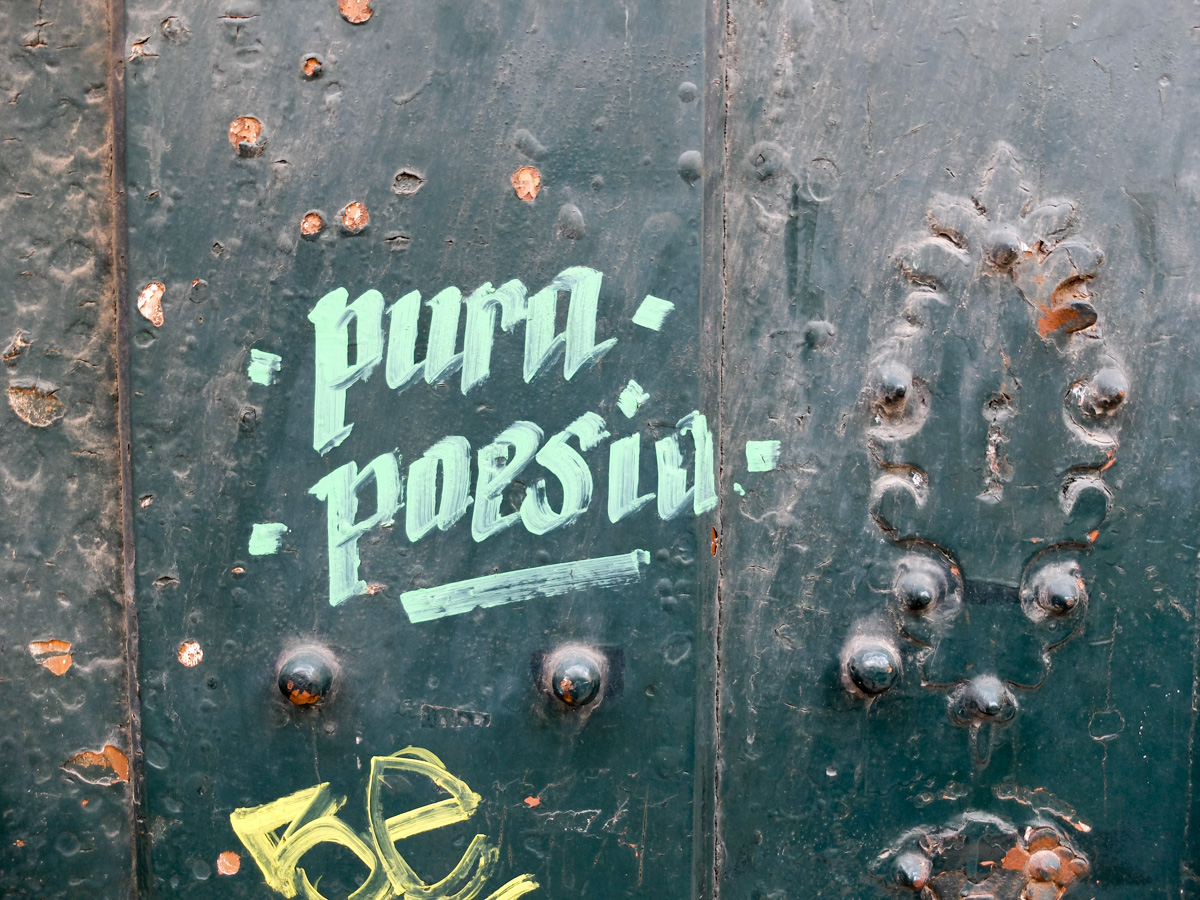 · pura ·
· poesia ·